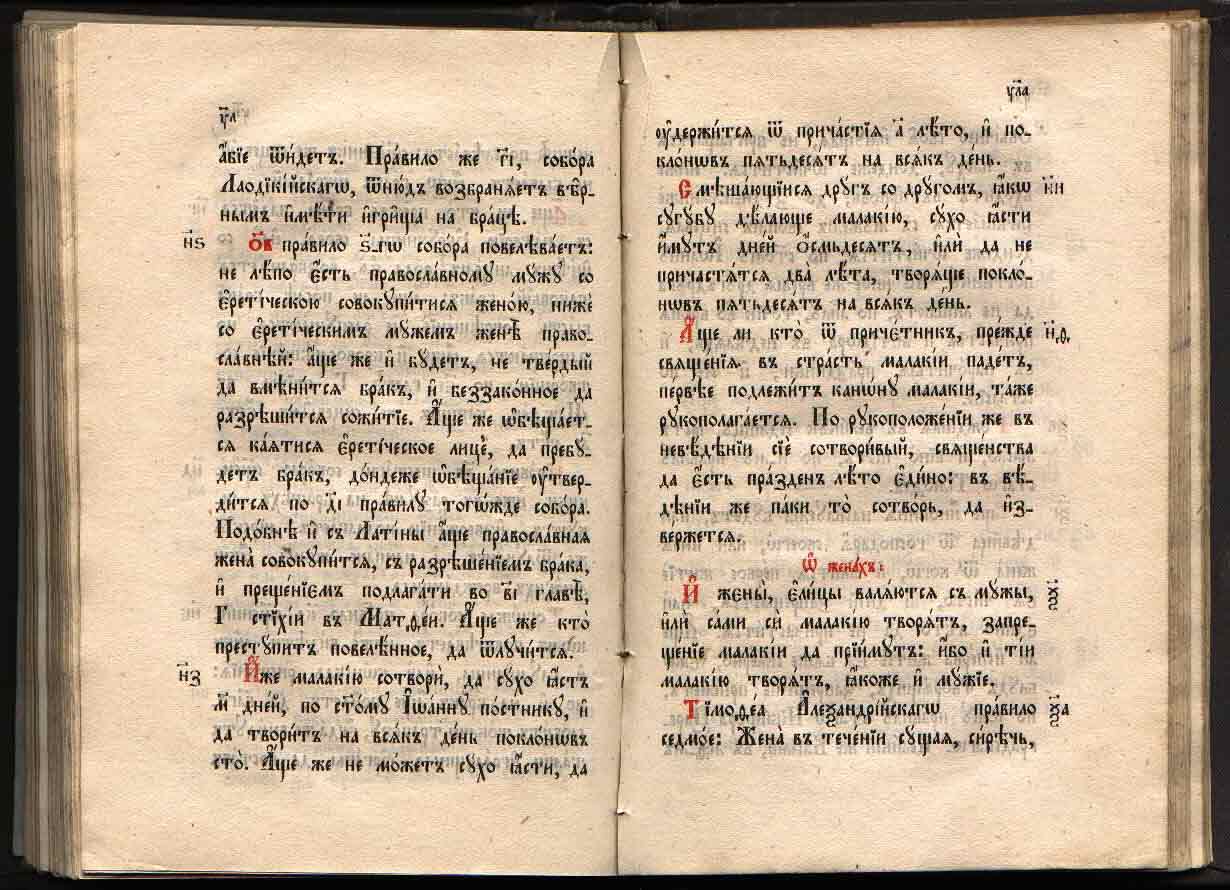 у҃л
а҆́бїе ѿи́детъ. Пра́вило же г҃і, собо́ра
Лаодїкі́йскагѡ, ѿню́дъ возбранѧ́етъ вѣ̑р‑
нымъ и҆мѣ́ти и҆гри́ща на бра́цѣ.
н҃ѕ
Ѻ҆́в пра́вило ѕ҃‑гѡ собо́ра повелѣва́етъ:
не лѣ́по є҆́сть правосла́вному мꙋ́жꙋ со
є҆реті́ческою совокꙋпи́тисѧ жено́ю, нижѐ
со є҆реті́ческимъ мꙋ́жемъ женѣ̀ право‑
сла́внѣй: а҆́ще же и҆ бꙋ́детъ, не тве́рдый
да вмѣни́тсѧ бра́къ, и҆ беззако́нное да
разрѣши́тсѧ сожи́тїе. А҆́ще же ѡ҆бѣща́ет‑
сѧ ка́ѧтисѧ є҆реті́ческое лицѐ, да пребꙋ́‑
детъ бра́къ, до́ндеже ѡ҆бѣща́нїе ᲂу҆твер‑
ди́тсѧ по д҃і пра́вилꙋ тогѡ́жде собо́ра.
Подо́бнѣ и҆ съ Лати́ны а҆́ще правосла́внаѧ
жена̀ совокꙋпи́тсѧ, съ разрѣше́нїемъ бра́ка,
и҆ преще́нїемъ подлага́ти во в҃і главѣ̀,
Г стїхі́и въ Матѳе́и. А҆́ще же кто̀
престꙋ́питъ повелѣ́нное, да ѿлꙋчи́тсѧ.
н҃з
И҆́же малакі́ю сотвори̑, да сꙋ́хо ꙗ҆́стъ
м҃ дне́й, по ст҃о́мꙋ І҆ѡа́ннꙋ по́стникꙋ, и҆
да твори́тъ на всѧ́къ де́нь покло́нѡвъ
сто̀. А҆́ще же не мо́жетъ сꙋ́хо ꙗ҆́сти, да
у҃ла
ᲂу҆держи́тсѧ ѿ прича́стїѧ а҃ лѣ́то, и҆ по‑
кло́нѡвъ пѧтьдесѧ́тъ на всѧ́къ де́нь.
н҃и
Смѣша́ющїисѧ дрꙋ́гъ со дрꙋ́гомъ, ꙗ҆́кѡ
сꙋгꙋ́бꙋ дѣ́лающе малакі́ю, сꙋ́хо ꙗ҆́сти
и҆́мꙋтъ дне́й ѻ҆смьдесѧ́тъ, и҆лѝ да не
причастѧ́тсѧ два̀ лѣ̑та, творѧ́ще покло́‑
нѡвъ пѧтьдесѧ́тъ на всѧ́къ де́нь.
н҃ѳ
А҆́ще ли кто̀ ѿ приче́тникъ, пре́жде
свѧще́нїѧ въ стра́сть малакі́и паде́тъ,
пе́рвѣе подлежи́тъ канѡ́нꙋ малакі́и, та́же
рꙋкополага́етсѧ. По рꙋкоположе́нїи же въ
невѣ́дѣнїи сїѐ сотвори́вый, свѧще́нства
да є҆́сть пра́зденъ лѣ́то є҆ди́но: въ вѣ́‑
дѣнїи же па́ки то̀ сотво́рь, да и҆з‑
ве́ржетсѧ.
Ѡ҆ жена́хъ:
И҆ жены̀, є҆ли́цы валѧ́ютсѧ съ мꙋ́жы,
и҆лѝ са́ми сѝ малакі́ю творѧ́тъ, запре‑
ще́нїе малакі́и да прїи́мꙋтъ: и҆́бо и҆ ті́и
малакі́ю творѧ́тъ, ꙗ҆́коже и҆ мꙋ́жїе.
Тїмоѳе́а А҆леѯандрі́йскагѡ пра́вило
седмо́е: Жена̀ въ тече́нїи сꙋ́щаѧ, си́рѣчь,